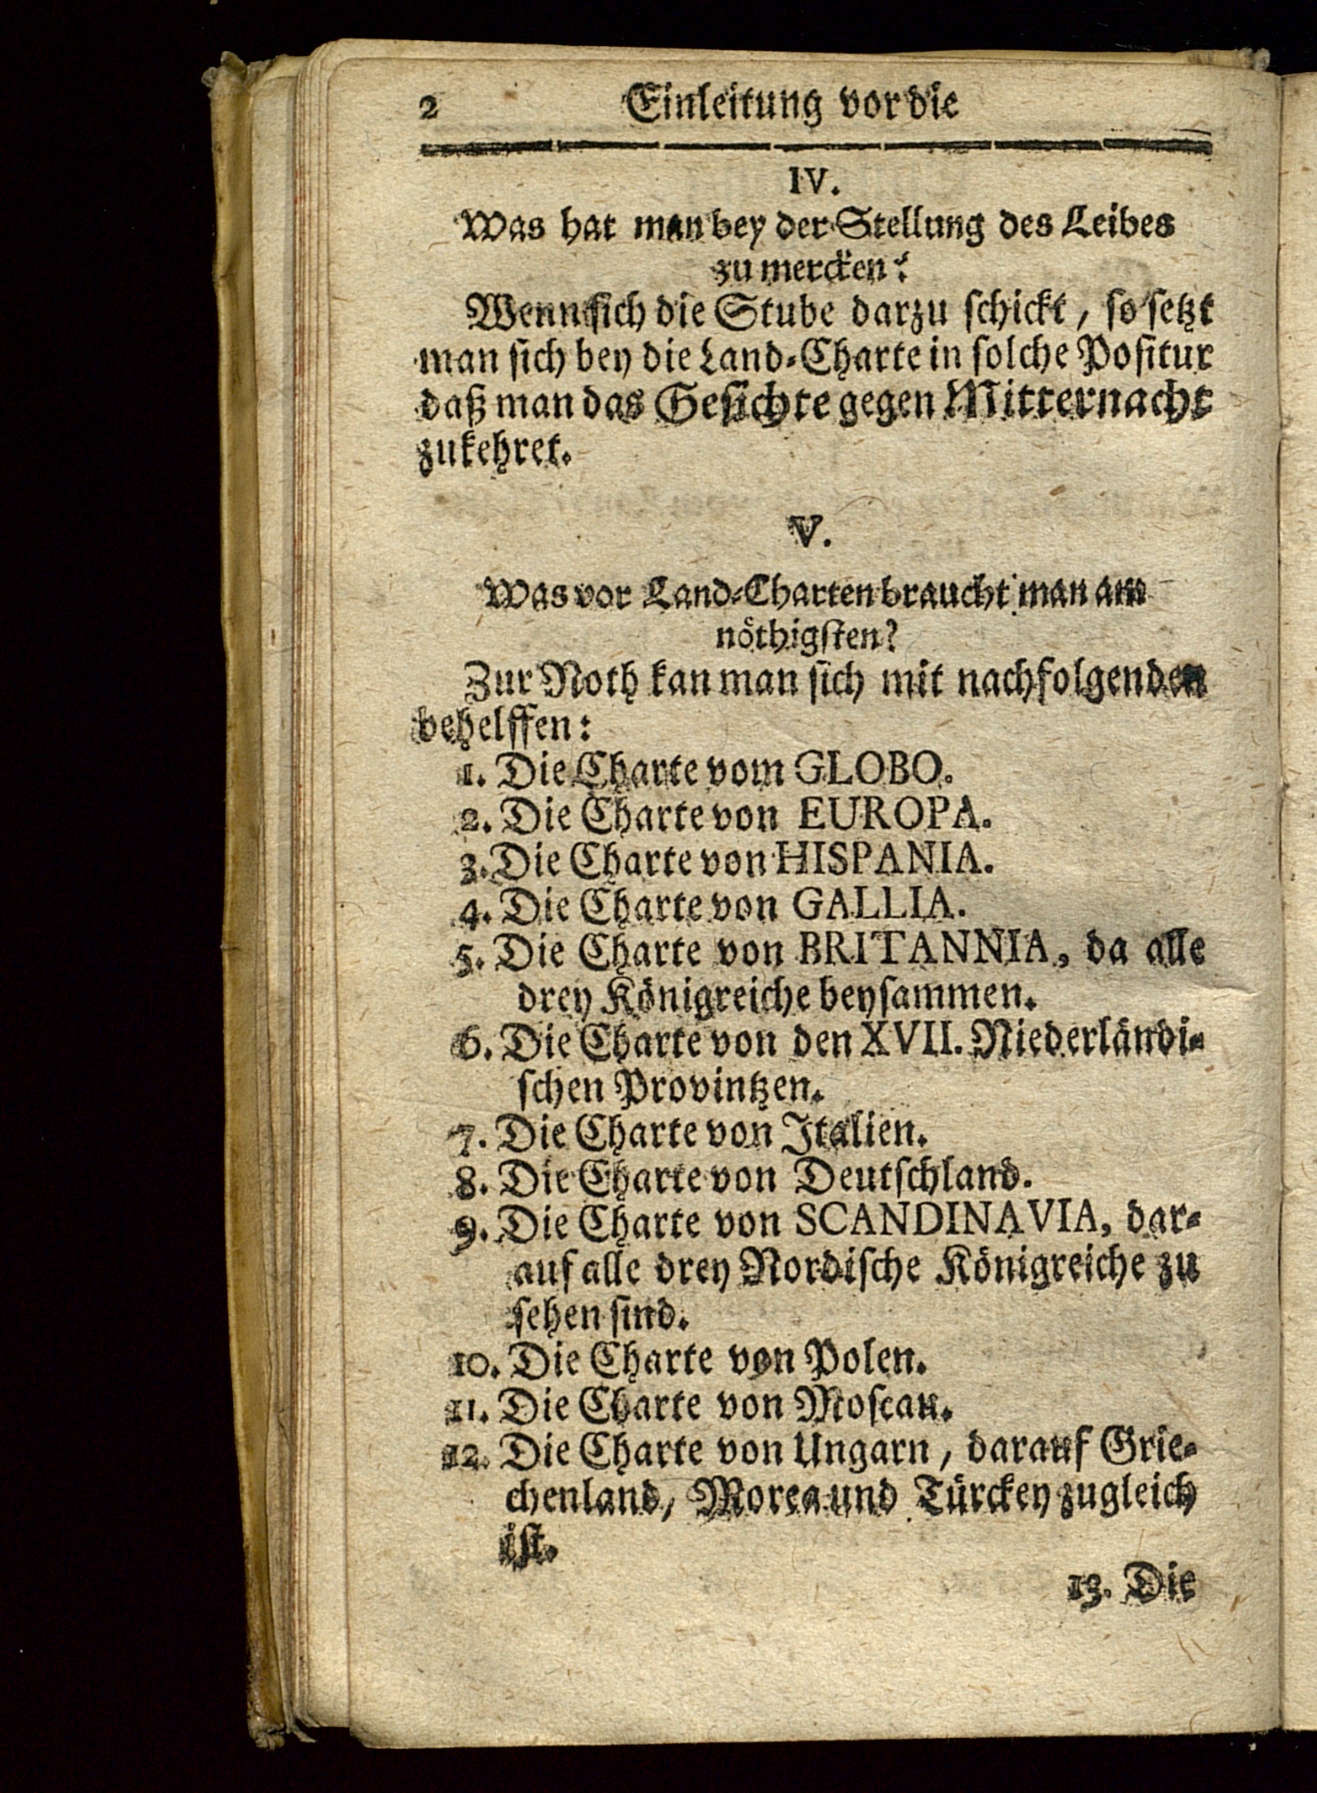 2 Einleitung vor die
IV.
Was hat man bey der Stellung des Leibes
zu mercken?
Wenn sich die Stube darzu schickt, so setzt
man sich bey die Land-Charte in solche Positur
daß man das Gesichte gegen Mitternacht
zukehret.
V.
Was vor Land-Charten braucht man am
nöthigsten?
Zur Noth kan man sich mit nachfolgenden
behelffen:
1. Die Charte vom GLOBO.
2. Die Charte von EUROPA.
3. Die Charte von HISPANIA.
4. Die Charte von GALLIA.
5. Die Charte von BRITANNIA, da alle
drey Königreiche beysammen.
6. Die Charte von den XVII. Niederländi-
schen Provintzen.
7. Die Charte von Italien.
8. Die Charte von Deutschland.
9. Die Charte von SCANDINAVIA, dar-
auf alle drey Nordische Königreiche zu
sehen sind.
10. Die Charte von Polen.
11. Die Charte von Moscau.
12. Die Charte von Ungarn, darauf Grie-
chenland, Morea und Türckey zugleich
ist.
13. Die